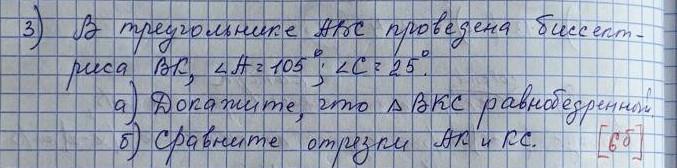 3) В треугольнике АВС проведена биссект-
риса ВК, ∠A=105°; ∠C=25°.
а) Докажите, что △ВКС равнобедренный.
б) Сравните отрезки АК и КС. [6б]